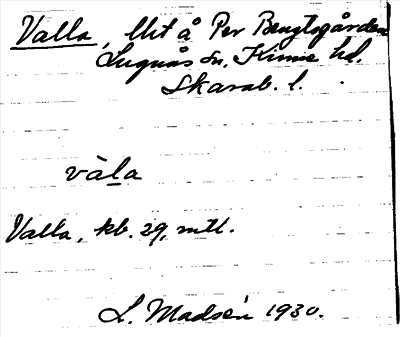 Valla, llit å Per Bengtsgården
Lugnås sn, Kinne hd.
Skarab. l.
vàla
Valla, kb. 29, mtl.
L. Madsén 1930.